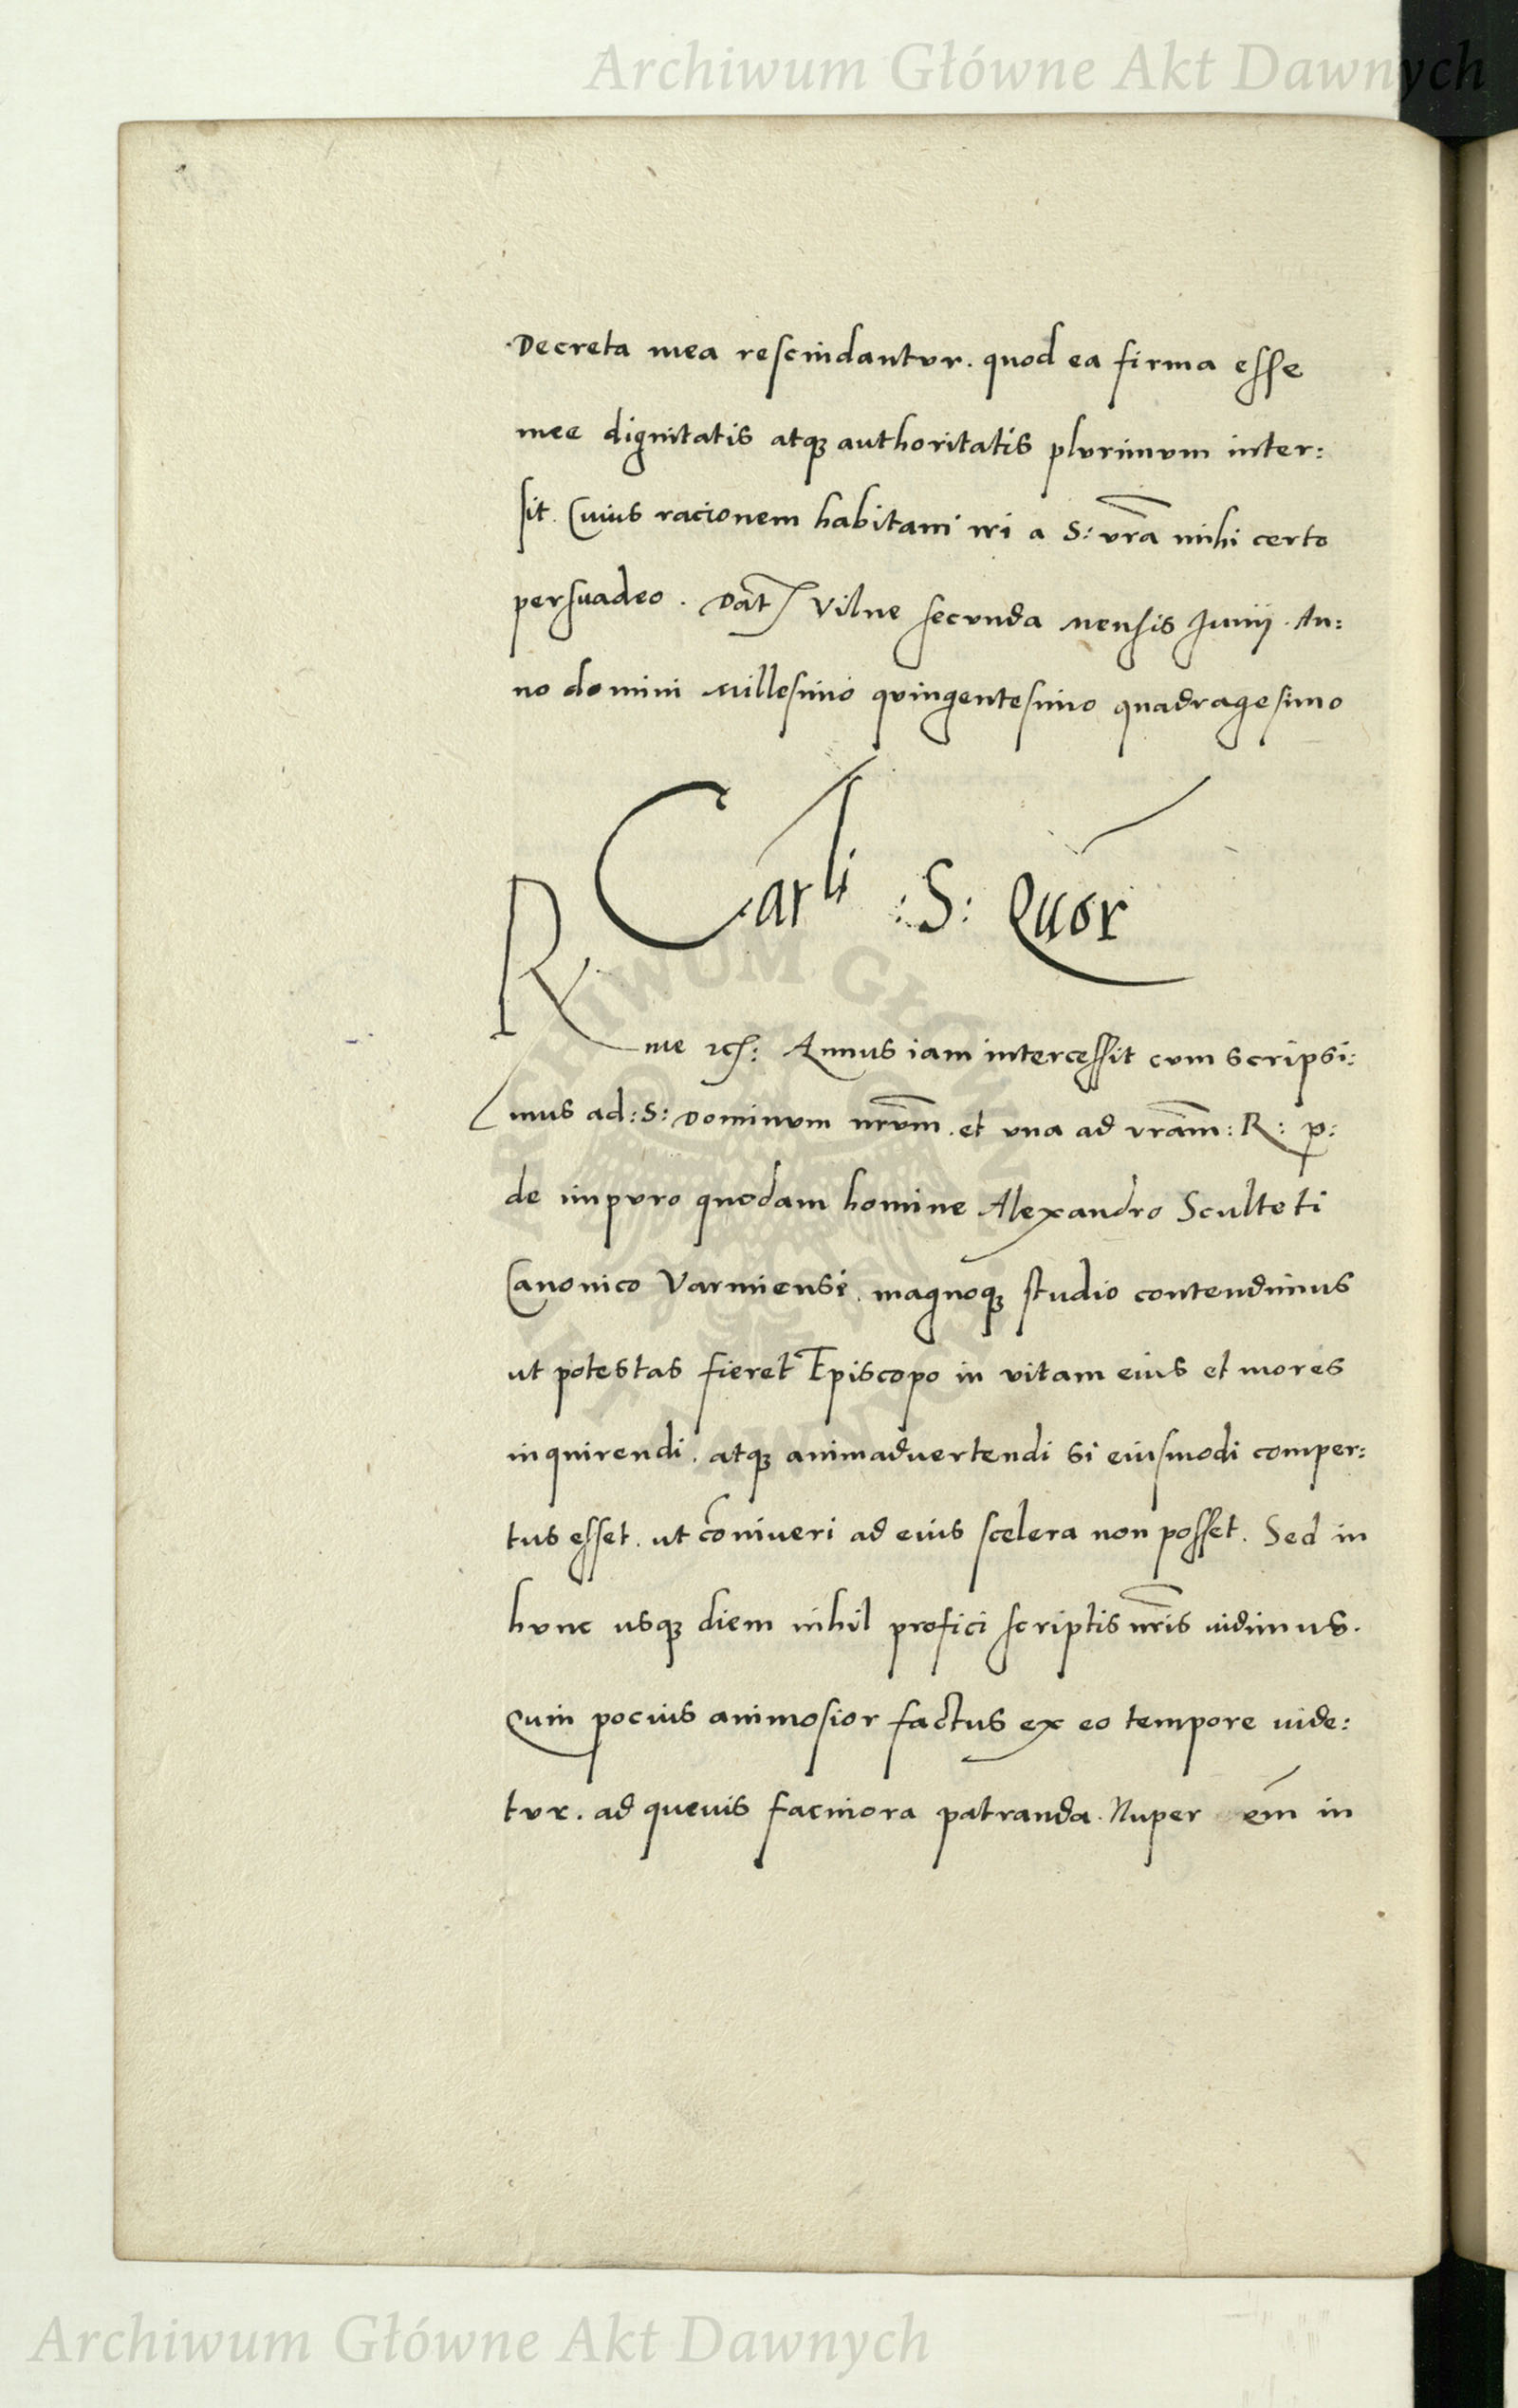 Archiwum Główne Akt Dawnych
Decreta mea rescindantvr. quod ea firma esse
mee dignitatis atqȝ authoritatis plvrimvm inter:
sit. Cuius racionem habitam iri a S: vrā mihi certo
persuadeo. Dat Vilne secvnda mensis Junij. An:
no domini millesimo qvingentesimo quadragesimo
Carli :S: Quor
Rme rcs: Annus iam intercessit cvm scripsi:
mus ad :S: Dominvm nrvm̄. et vna ad vrām: R: p:
de impvro quodam homine Alexandro Sculteti
Canonico Varmiensi. magnoqȝ studio contendimus
ut potestas fieret Episcopo in vitam eius et mores
inquirendi. atqȝ animaduertendi si eiusmodi comper:
tus esset. ut coniueri ad eius scelera non posset. Sed in
hvnc usqȝ diem nihil profici scriptis nrīs uidimus.
Quin pocius animosior factus ex eo tempore uide:
tvr. ad queuis facinora patranda. Nuper em̄ in
ARCHIWUM GŁÓWNE
AKT DAWNYCH
Archiwum Główne Akt Dawnych